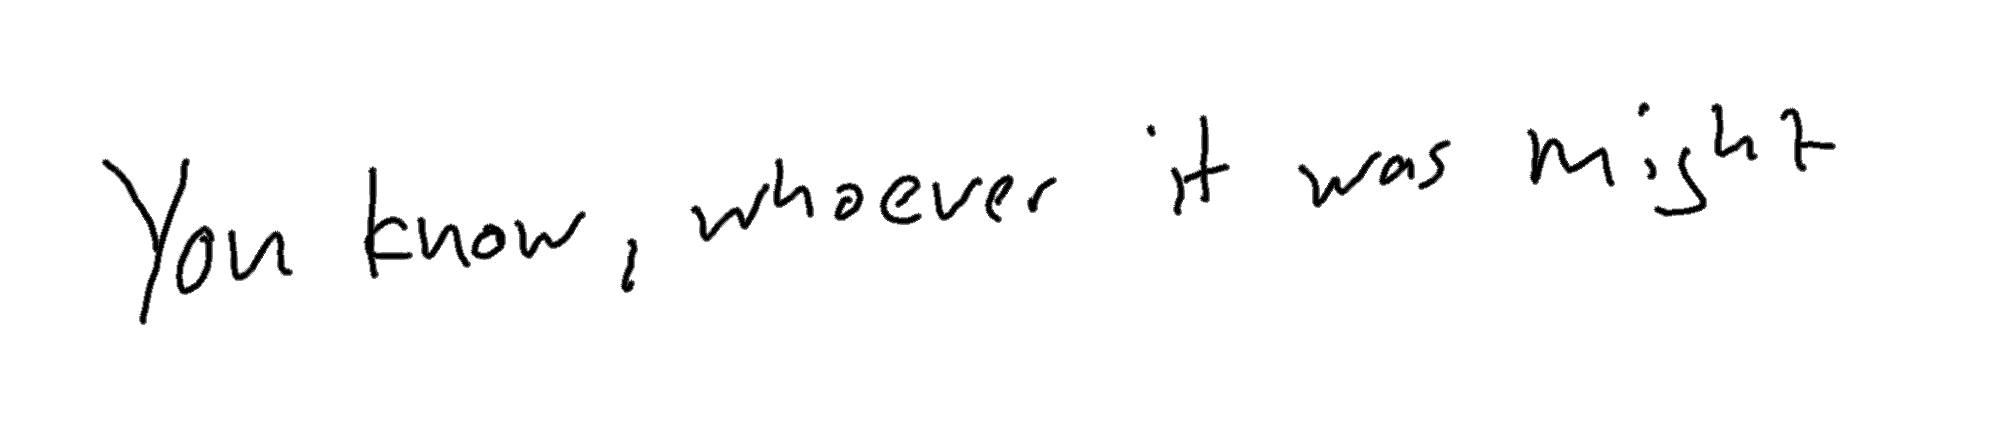 You know, whoever it was might